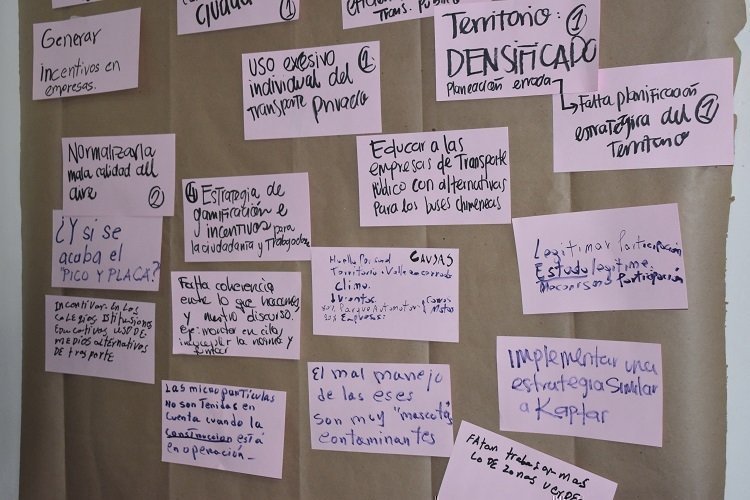 ciudad
1
Trans. Público
Territorio: 1
DENSIFICADO
Planeación errada
Generar
incentivos en
empresas.
Uso excesivo
individual del 1
Transporte Privado
Falta planificación
estratégica del 1
Territorio
Normalizar la
mala calidad del
aire
2
4 Estrategia de
gamificación e
incentivos para
la ciudadanía y Trabajadores
Educar a las
empresas de Transporte
Público con alternativas
Para los buses chimeneas
¿Y si se
acaba el
"PICO Y PLACA?
Falta coherencia
entre lo que hacemos
y nuestro discurso.
eje: montar en cicla,
y fumar
CAUSAS
Huella Personal
Territorio: Valle encerrado
Clima.
Vientos
Parque Automotor:
Empresas:
Legitimar Participación
Estado legitime,
Mecanismos Participación
Incentivar. En los
colegios Istitusiones
Educativas, USO DE
MEDIOS alternativos
DE trasporte
Las micropartículas
No son tenidas en
cuenta cuando la
construccion está
en operación_
El mal manejo
de las eses
son muy "mascotas"
contaminantes
Implementar una
estrategia Similar
a Kaptar
trabajar mas
LO DE Zonas verdes